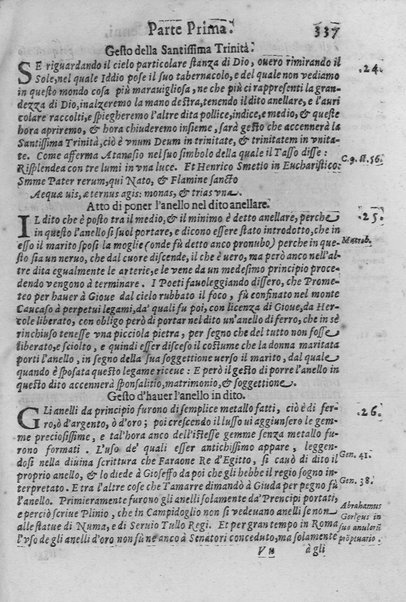 Parte Prima. 337
Gesto della Santissima Trinità.
SE riguardando il cielo particolare stanza di Dio, overo rimirando il .24.
Sole, nel quale Iddio pose il suo tabernacolo, e del quale non vediamo
in questo mondo cosa più maravigliosa, ne che più ci rappresenti la gran-
dezza di Dio, inalzeremo la mano destra, tenendo il dito anellare, e l'auri
colare raccolti, e spiegheremo l'altre dita pollice, indice, e medio, & queste
hora apriremo, & hora chiuderemo insieme, sarà gesto che accennerà la
Santissima Trinità, ciò è vnum Deum in trinitate, & trinitatem in vnita-
te. Come afferma Atanasio nel suo simbolo della quale il Tasso disse: C. 9. st. 56.
Risplendea con tre lumi in vna luce. Et Henrico Smetio in Eucharistico:
Smme Pater rerum, qui Nato, & Flamine sancto
Aequa vis, aeternus agis: monas, & trias vna.
Atto di poner l'anello nel dito anellare.
IL dito che è posto tra il medio, & il minimo è detto anellare, perche .25.
in questo l'anello si suol portare, e dicono essere stato introdotto, che in
esso il marito sposi la moglie (onde fù detto anco pronubo) perche in que- Macrob.
sto sia un neruo, che dal cuore discende, il che è uero, ma però anco nell'al-
tre dita egualmente le arterie, e le vene da un medesimo principio proce-
dendo vengono à terminare. I Poeti fauoleggiando dissero, che Prome-
teo per hauer à Gioue dal cielo rubbato il foco, fù confinato nel monte
Caucaso à perpetui legami, da' quali fu poi, con licenza di Gioue, da Her-
cole liberato, con obligo però di portar nel dito un'anello di ferro, che in sè
rinchiuso tenesse vna picciola pietra, per segno che del tutto non fosse
liberato, e sciolto, e quindi esser disceso il costume che la donna maritata
porti l'anello, in segno della sua soggettione uerso il marito, dal quale
quando è sposata questo legame riceue: E però il gesto di porre l'anello in
questo dito accennerà sponsalitio, matrimonio, & soggettione.
Gesto d'hauer l'anello in dito.
GLi anelli da principio furono di semplice metallo fatti, ciò è di fer- .26.
ro, ò d'argento, ò d'oro; poi crescendo il lusso ui aggiunsero le gem
me preciosissime, e tal'hora anco dell'istesse gemme senza metallo fu-
rono formati. L'uso de' quali esser antichissimo appare, leggen-
dosi nella diuina scrittura che Faraone Re d'Egitto, si cauò di dito il Gen. 41.
proprio anello, & lo diede à Gioseffo da poi che gli hebbe il regio sogno in-
terpretato. E tra l'altre cose che Tamarre dimandò à Giuda per pegno fù Gen. 38.
l'anello. Primieramente furono gli anelli solamente da' Prencipi portati, Abrahamus
e perciò scriue Plinio, che in Campidoglio non si vedeuano anelli se non Gorlęus in
alle statue di Numa, e di Seruio Tullo Regi. Et per gran tempo in Roma suo anulorũ
l'vso de gli anelli d'oro non fù ne anco à Senatori conceduto, ma solamente prõptuario.
Vu à gli